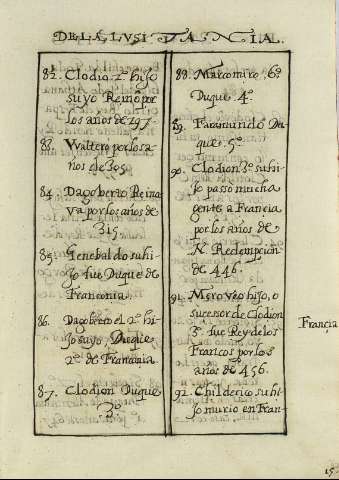 DE LA LUSITANIA.
82. Clodio 2º hijo
suyo Reino por
los años de 297.
83. Waltero por los a-
ños de 305.
84. Dagoberto Reina
va por los años de
315
85. Genebaldo su hi-
jo fue Duque de
Franconia.
86. Dagoberto el 2º hi-
jo suyo, Duque
2º de Franconia
87. Clodion Duque
3º
88. Marcomiro, 6º
Duque 4º
89. Faramundo Du
que 5º
90. Clodion 3º su hi-
jo passo mucha
gente a Francia
por los años de
N. Redempcion
de 446.
91. Meroveo hijo, o
sucessor de Clodion
3º fue Rey de los
Francos por los
años de 456.
92. Childerico su hi
jo murio en Fran-
Francia
15